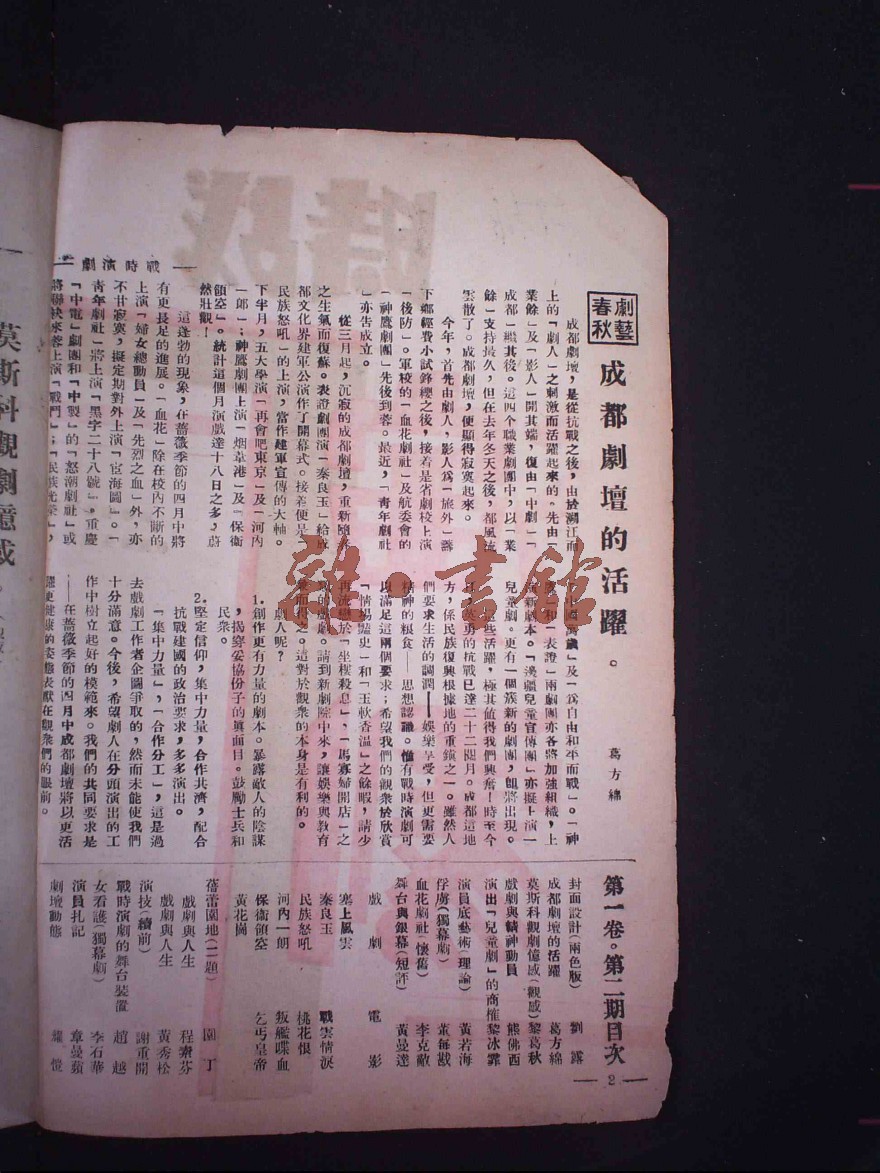 戰時演劇
劇藝
春秋
成都劇壇的活躍。
葛方綿
成都劇壇,是從抗戰之後,由於滬江而
上的「劇人」之刺激而活躍起來的。先由「
業餘」及「影人」開其端,復由「中劇」「
成都」繼其後。這四個職業劇團中,以「業
餘」支持最久,但在去年冬天之後,都風流
雲散了。成都劇壇,便顯得寂寞起來。
今年,首先由劇人,影人爲「旅外」籌
下鄉經費小試鋒纓之後,接着是省劇校上演
「後防」。軍校的「血花劇社」及航委會的
「神鷹劇團」先後到蓉。最近,「青年劇社
」亦告成立。
從三月起,沉寂的成都劇壇,重新
之生氣而復蘇。表證劇團演「秦良玉」給成
都文化界建軍公演作了開幕式。接着便是「
民族怒吼」的上演,當作建軍宣傳的大軸。
下半月,五大學演「再會吧東京」及「河內
一郎」;神鷹劇團上演「烟葦港」及「保衛
領空」。統計這個月演戲達十八日之多,蔚
然壯觀!
這蓬勃的現象,在薔薇季節的四月中將
有更長足的進展。「血花」除在校內不斷的
上演「婦女總動員」及「先烈之血」外,亦
不甘寂寞,擬定期對外上演「宦海圖」。「
青年劇社」將上演「黑字二十八號」,重慶
「中電」劇團和「中製」的「怒潮劇社」或
將聯袂來蓉上演「戰鬥」;「民族光榮」,
「中國萬歲」及「爲自由和平而戰」。「神
鷹」和「表證」兩劇團亦各將加強組織,上
演新劇本。「漢疆兒童宣傳團」亦擬上演一
兒童劇。更有一個簇新的劇團,即將出現。
這些活躍,極其值得我們興奮!時至今
日,英勇的抗戰已達二十二個月。成都這地
方,係民族復興根據地的重鎮之一。雖然人
們要求生活的調潤——娛樂享受,但更需要
精神的粮食——思想認識。惟有戰時演劇可
以滿足這兩個要求;希望我們的觀衆於欣賞
「情場豔史」和「玉軟香溫」之餘暇,請少
再流戀於「坐樓殺惜」,「馬寡婦開店」之
的戲劇。請到新劇院中來,讓娛樂與教育
兼而得之。這對於觀衆的本身是有利的。
劇人呢?
1.創作更有力量的劇本。暴露敵人的陰謀
,揭穿妥協份子的眞面目。鼓勵士兵和
民衆。
2.堅定信仰,集中力量,合作共濟,配合
抗戰建國的政治要求,多多演出。
「集中力量」,「合作分工」,這是過
去戲劇工作者企圖爭取的,然而未能使我們
十分滿意。今後,希望劇人在分頭演出的工
作中樹立起好的模範來。我們的共同要求是
——在薔薇季節的四月中成都劇壇將以更活
躍更健康的姿態表獻在觀衆們的眼前。
第一卷。第二期目次
封面設計(兩色版) 劉露
成都劇壇的活躍 葛方綿
莫斯科觀劇億感(觀感) 黎葛秋
戲劇與精神動員 熊佛西
演出「兒童劇」的商榷 黎冰霏
演員底藝術(理論) 黃若海
俘虜(獨幕劇) 董每戡
血花劇社(懷舊) 李克敵
舞台與銀幕(短評) 黃曼達
戲劇 電影
塞上風雲 戰雲情淚
秦良玉 桃花恨
民族怒吼 叛艦喋血
河內一朗 乞丐皇帝
保衛領空
黃花崗
蓓蕾園地(二題) 園丁
戲劇與人生 程素芬
戲劇與人生 黃秀松
演技(續前) 謝重開
戰時演劇的舞台裝置 趙越
女看護(獨幕劇) 李石華
演員扎記 章曼蘋
劇壇動態 羅愷
— 2 —
莫斯科觀劇億感。
雜·書館